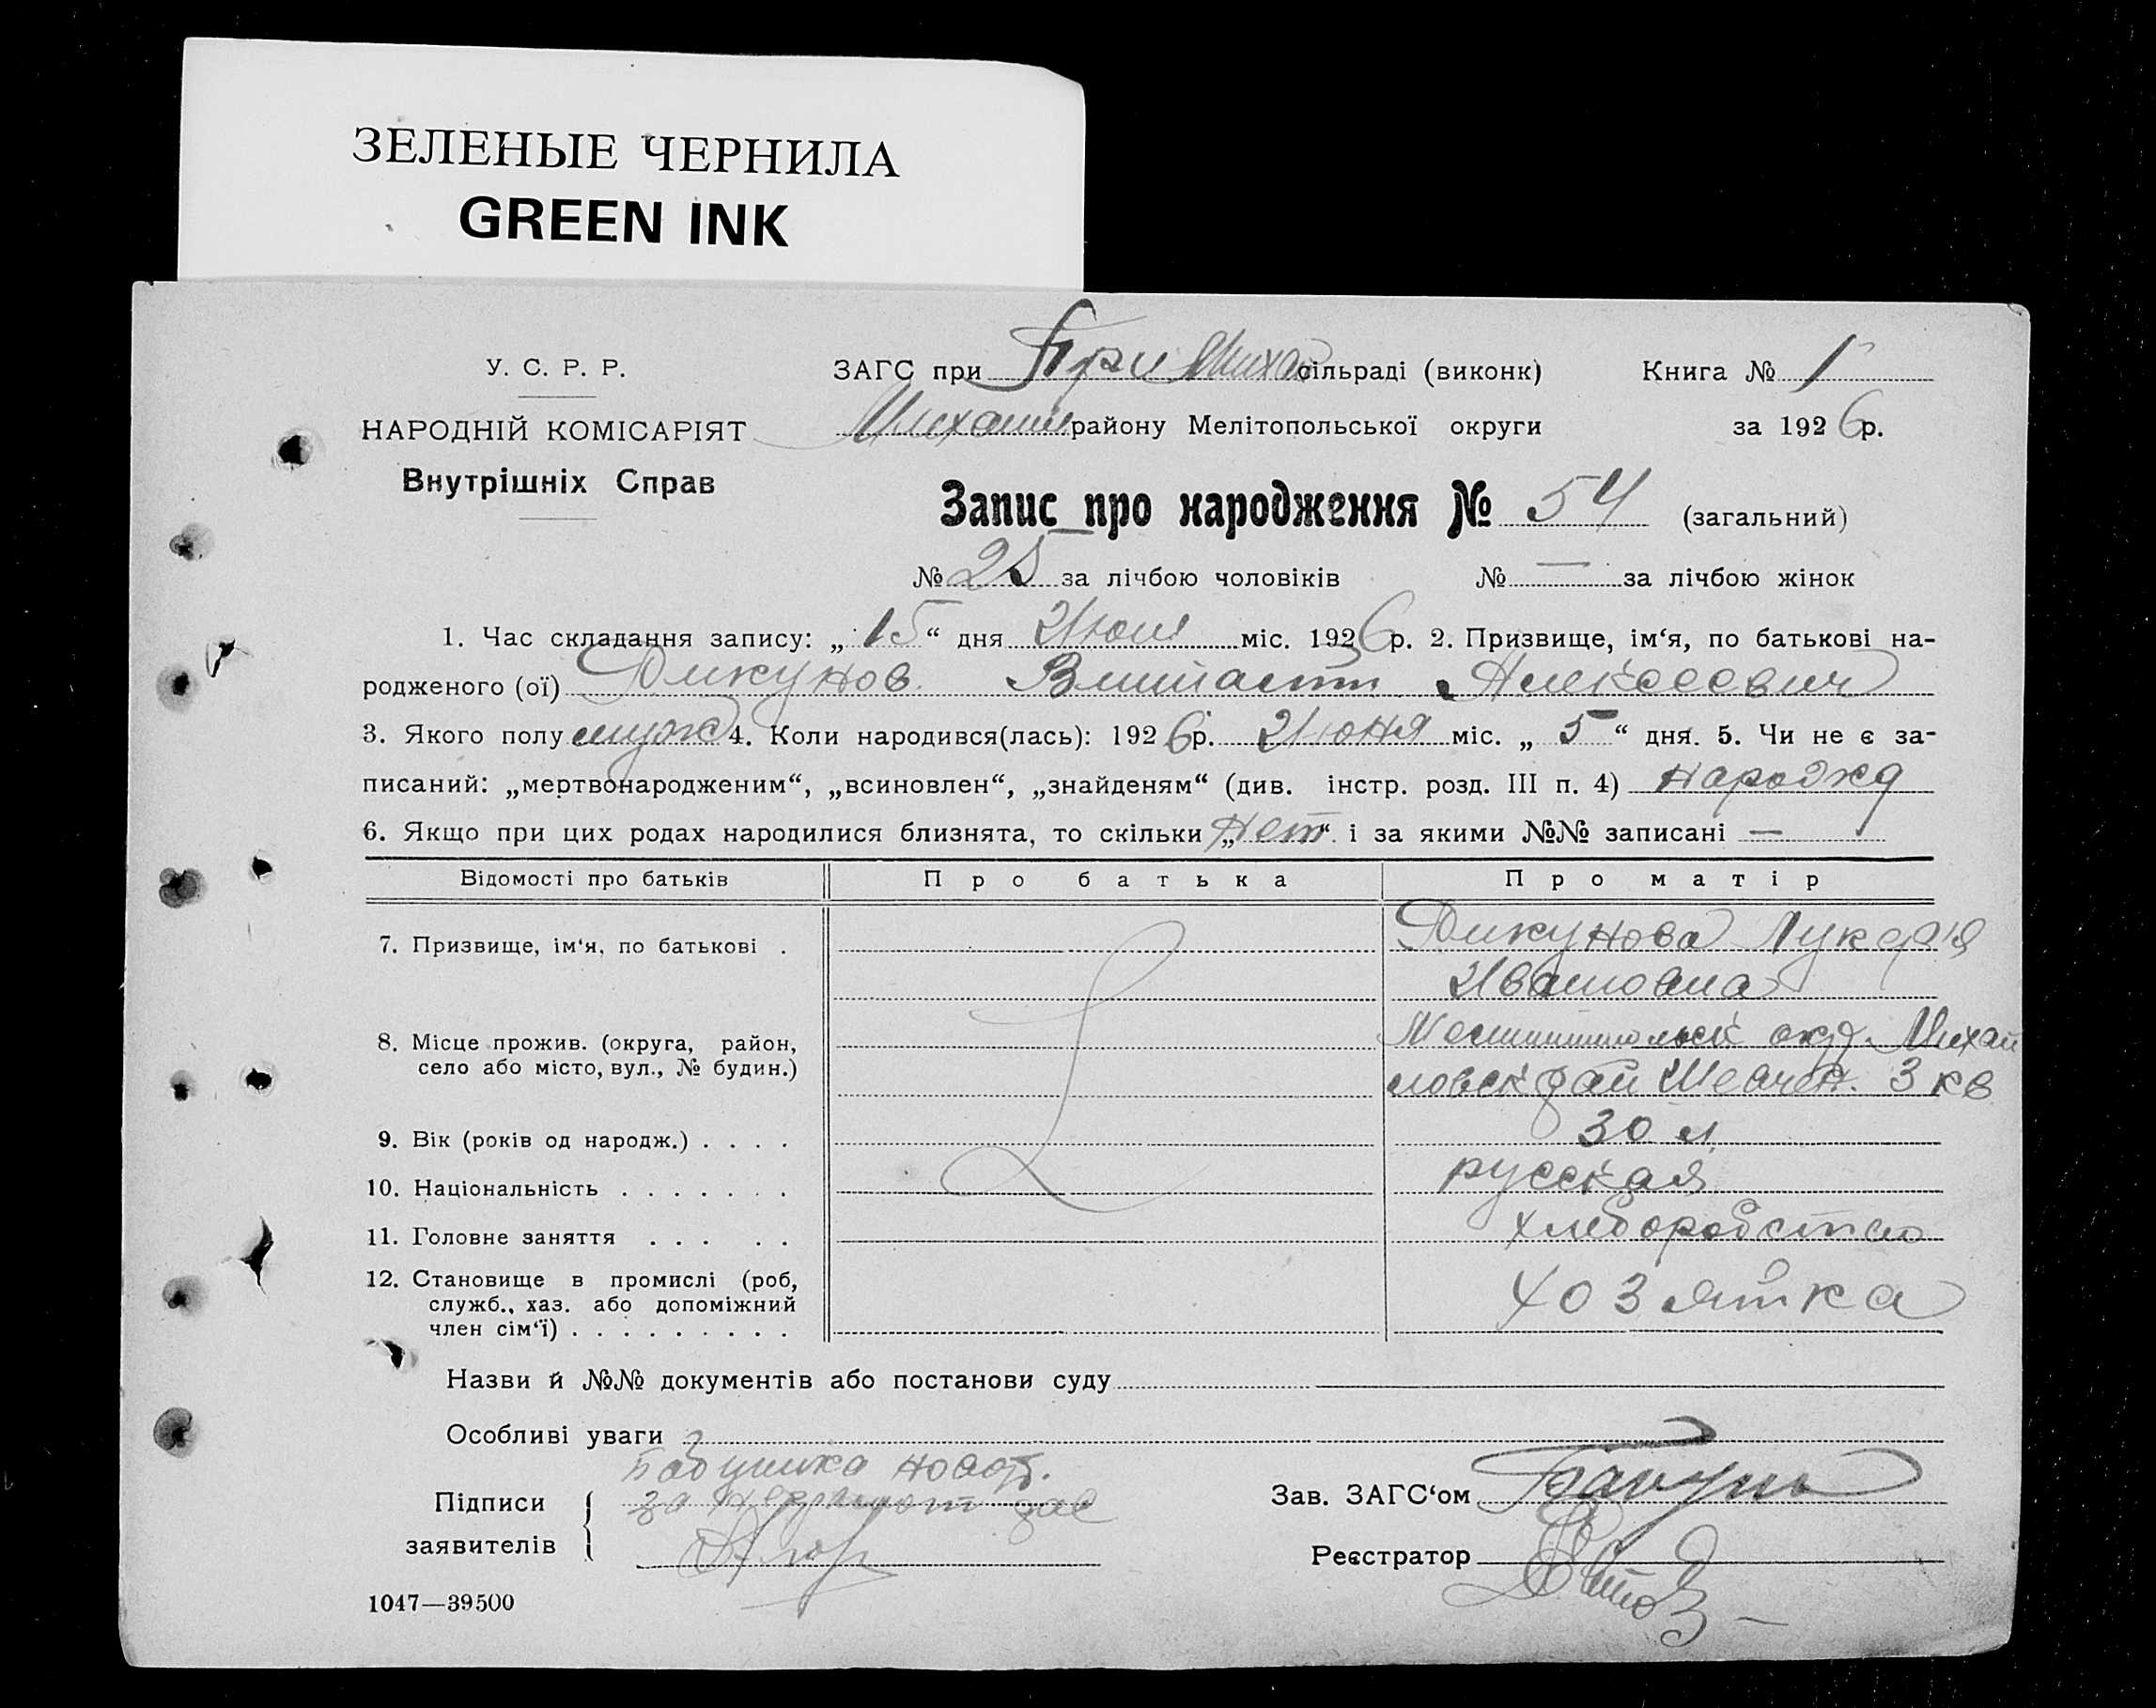 ЗЕЛЕНЫЕ ЧЕРНИЛА
GREEN INK
У. С. Р. Р.
НАРОДНІЙ КОМІСАРІЯТ
Внутрішніх Справ
ЗАГС при При Михай сільраді (виконк)
района Мелітопольської округи
Книга № 1
за 1926 р.
Запис про народження № 54 (загальний)
№ 25 за лічбою чоловіків № — за лічбою жінок
1. Час складання запису: „15“ дня Июля міс. 1926 р. 2. Призвище, ім‘я, по батькові на-
родженого (ої) Дикунов Алексеевич
3. Якого полу муж 4. Коли народився(лась): 1926 р. Июня міс. „5“ дня. 5. Чи не є за-
писаний: „мертвонародженим“, „всиновлен“, „знайденям“ (див. інстр. розд. III п. 4) народжд
6. Якщо при цих родах народилися близнята, то скільки „Нет“ і за якими №№ записані —
Відомості про батьків Про батька Про матір
7. Призвище, ім‘я, по батькові . Дикунова Лукерія
Ивановна
8. Місце прожив. (округа, район, село або місто, вул., № будин.) Мелитопольск окр. Михай
ловск рай Шевчен. 3 кв
9. Вік (років од народж.) . . . . 30 л
10. Національність . . . . . . . русская
11. Головне заняття . . . . . хлеборобство
12. Становище в промислі (роб, служб., хаз. або допоміжний член сім‘ї) . . . . . . . . . хозяйка
Назви й №№ документів або постанови суду
Особливі уваги
Підписи заявителів
Бабушка
за неграмот
Зав. ЗАГС‘ом
Реєстратор
1047—39500